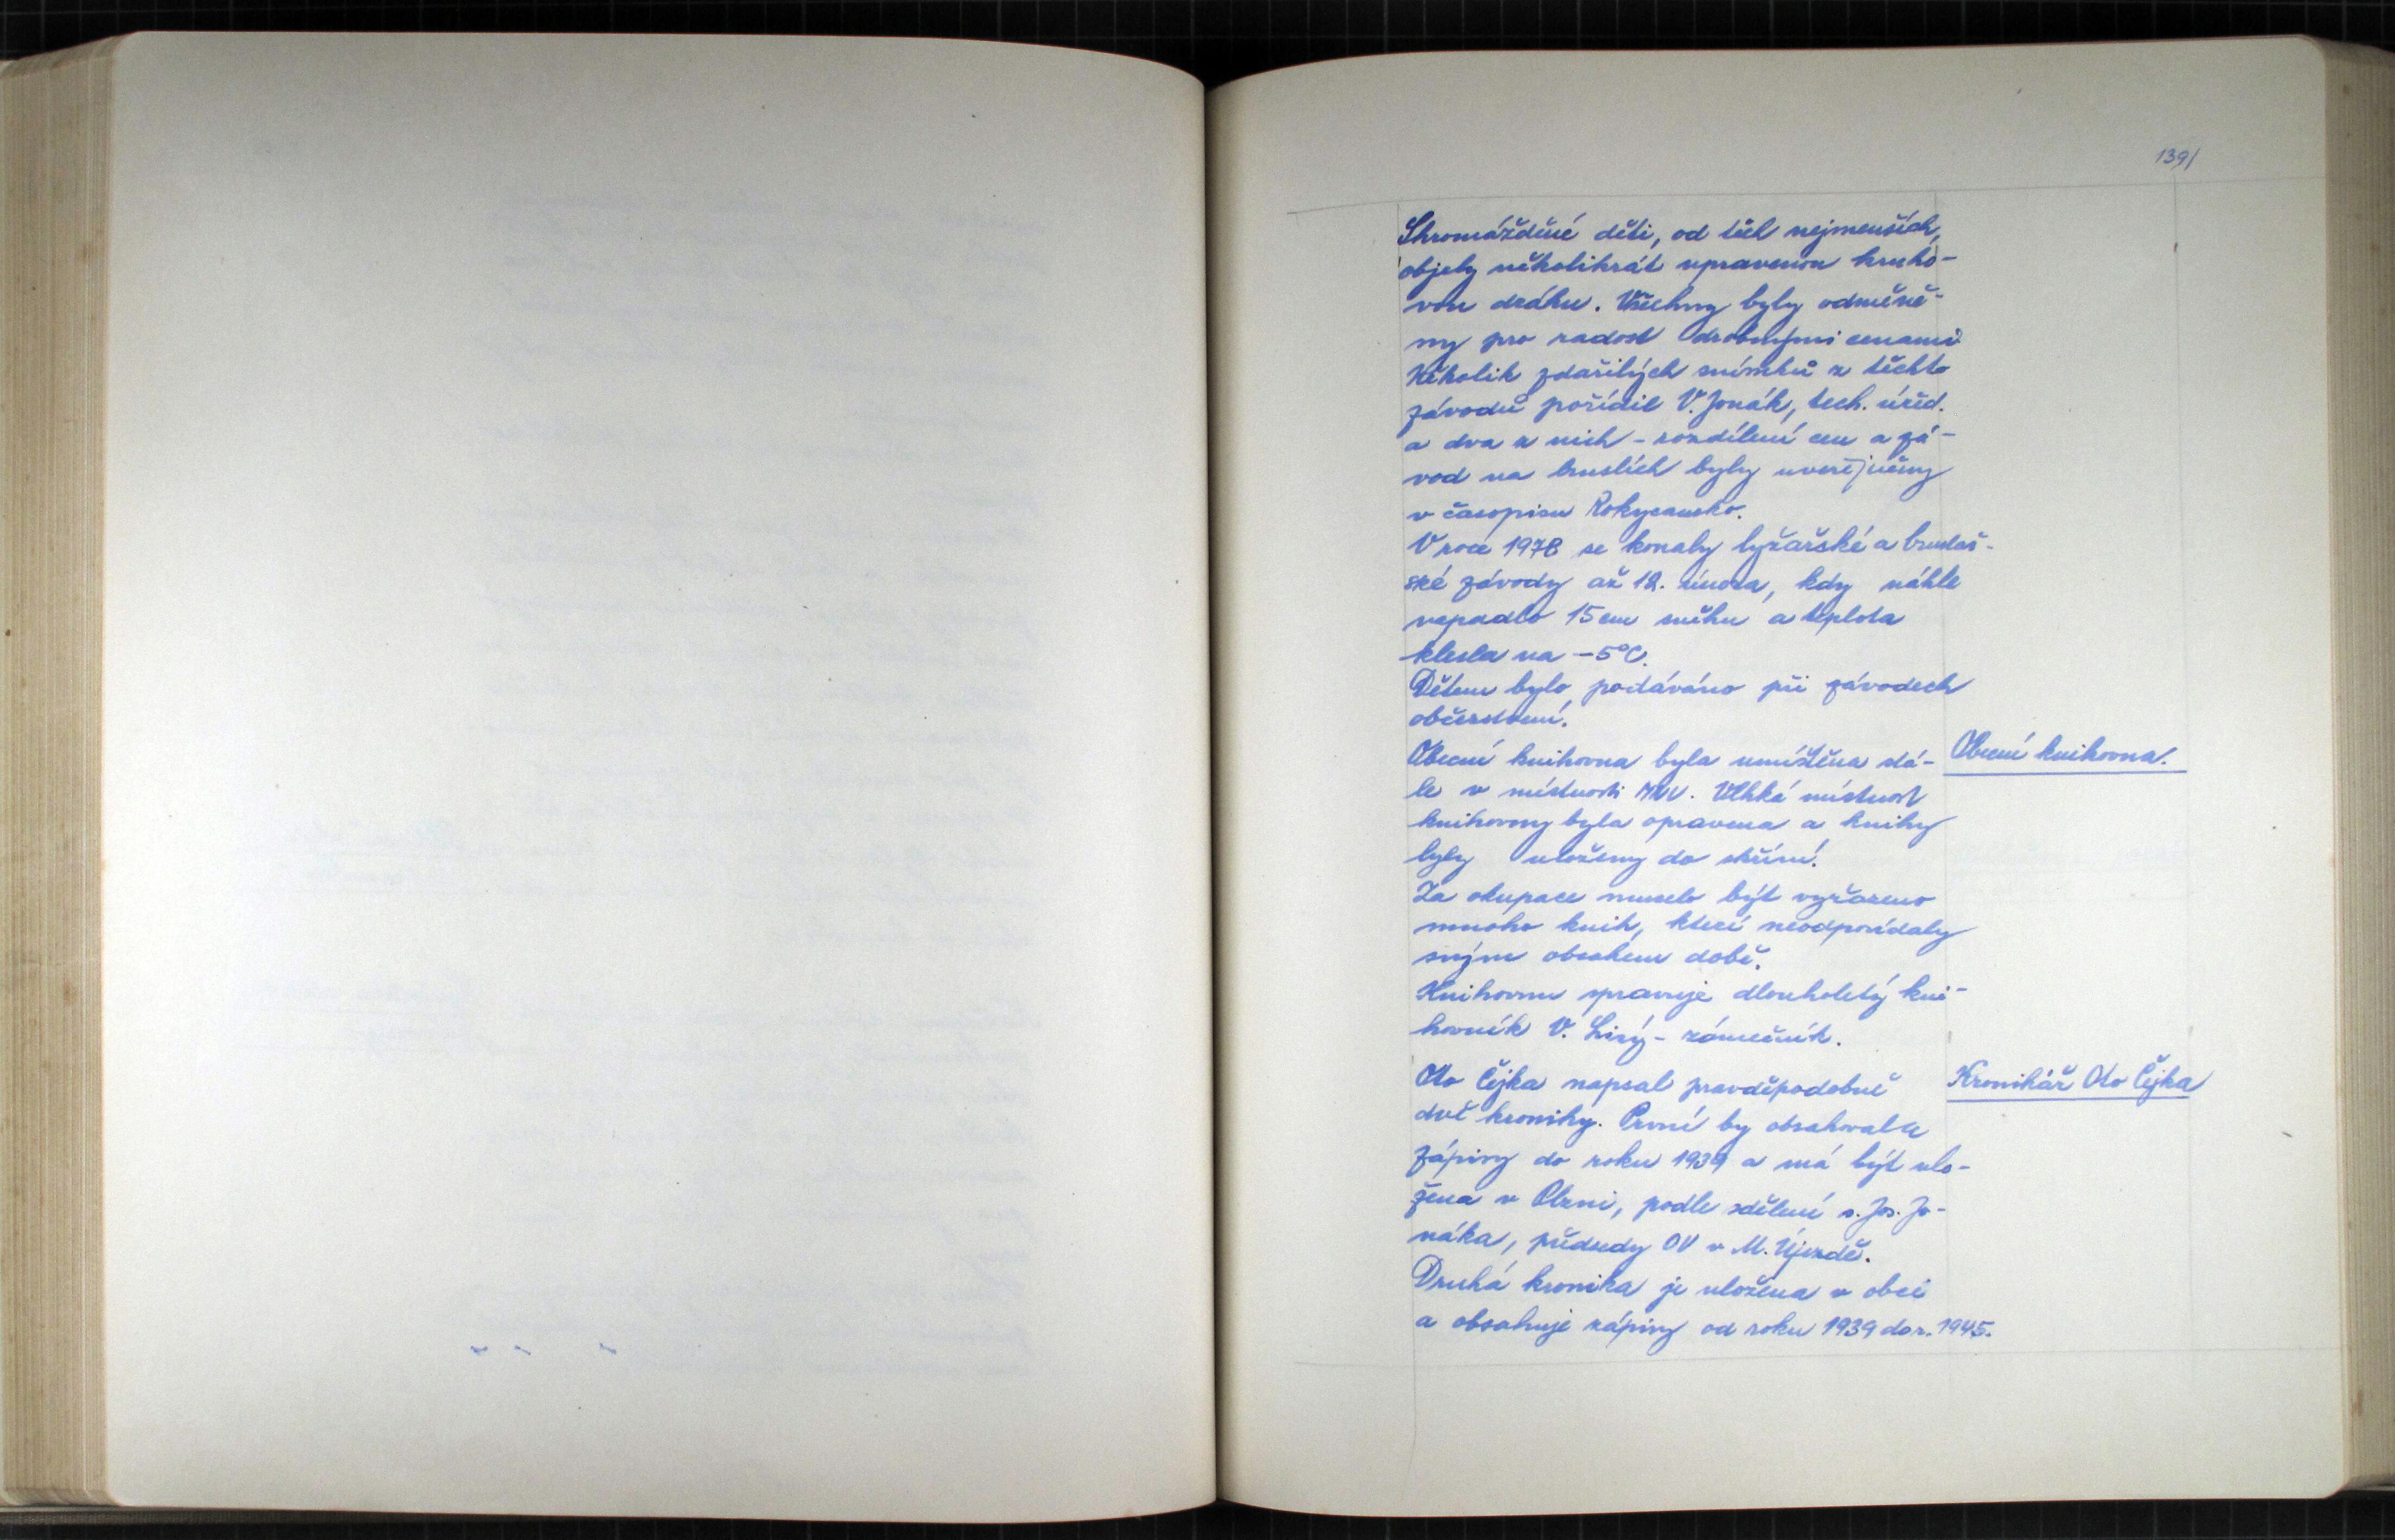 139/
Shromážděné děti, od těch nejmenších,
objely několikrát upravenou kruho-
vou dráhu. Všechny byly odměně-
ny pro radost drobnými cenami.
Několik zdařilých snímků z těchto
závodů pořídil V. Jonák, tech. úřed.
a dva z nich - rozdílení cen a zá-
vod na bruslích byly uveřejněny
v časopisu Rokycansko.
V roce 1978 se konaly lyžařské a bruslař-
ské závody až 12. února, kdy náhle
napadlo 15 cm sněhu a teplota
klesla na -5°C.
Dětem bylo podáváno při závodech
občerstvení.
Obecní knihovna byla umístěna stá-
Obecní knihovna.
le v místnosti MNV. Vlhká místnost
knihovny byla opravena a knihy
byly uloženy do skříní.
Za okupace muselo být vyřazeno
mnoho knih, které neodpovídaly
svým obsahem době.
Knihovnu spravuje dlouholetý kni-
hovník V. Lisý - zámečník.
Oto Čejka napsal pravděpodobně
Kronikář Oto Čejka
dvě kroniky. První by obsahovala
zápisy do roku 1939 a má být ulo-
žena v Plzni, podle sdělení s. Jos. Jo-
náka, předsedy OV v M. Újezdě.
Druhá kronika je uložena v obci
a obsahuje zápisy od roku 1939 do r. 1945.